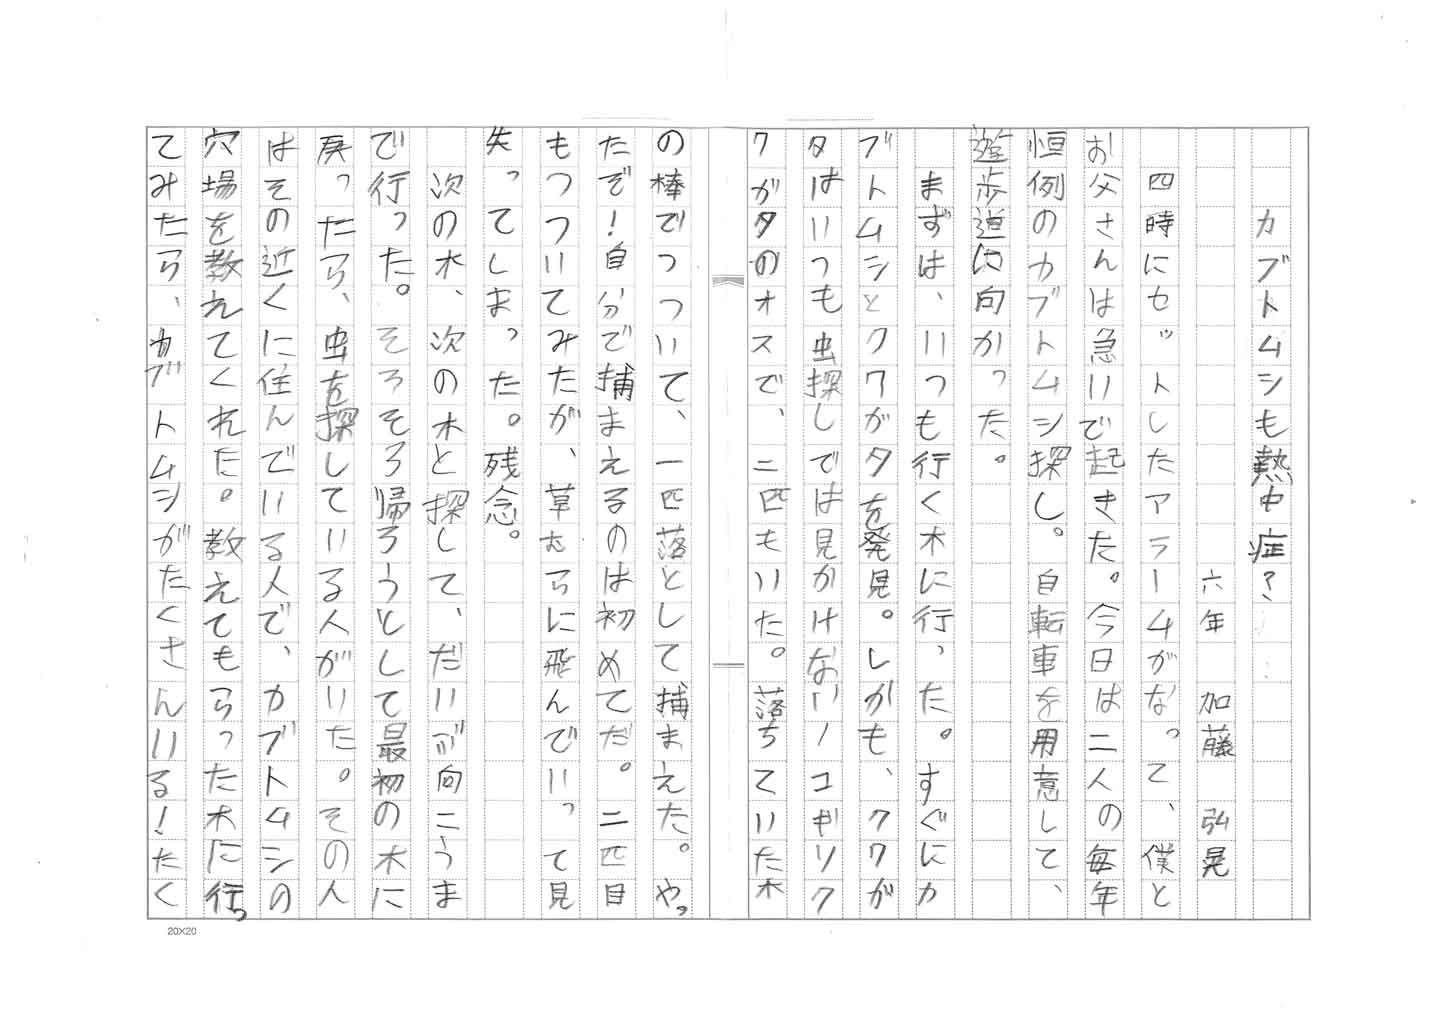 カブトムシも熱中症?
六年 加藤 弘晃
四時にセットしたアラームがなって、僕と
お父さんは急いで起きた。今日は二人の毎年
恒例のカブトムシ探し。自転車を用意して、
遊歩道に向かった。
まずは、いつも行く木に行った。すぐにカ
ブトムシとクワガタを発見。しかも、クワガ
タはいつも虫探しでは見かけないノコギリク
ワガタのオスで、二匹もいた。落ちていた木
の棒でつついて、一匹落として捕まえた。やっ
たぞ!自分で捕まえるのは初めてだ。二匹目
もつついてみたが、草むらに飛んでいって見
失ってしまった。残念。
次の木、次の木と探して、だいぶ向こうま
で行った。そろそろ帰ろうとして最初の木に
戻ったら、虫を探している人がいた。その人
はその近くに住んでいる人で、カブトムシの
穴場を教えてくれた。教えてもらった木に行っ
てみたら、カブトムシがたくさんいる!たく
20×20